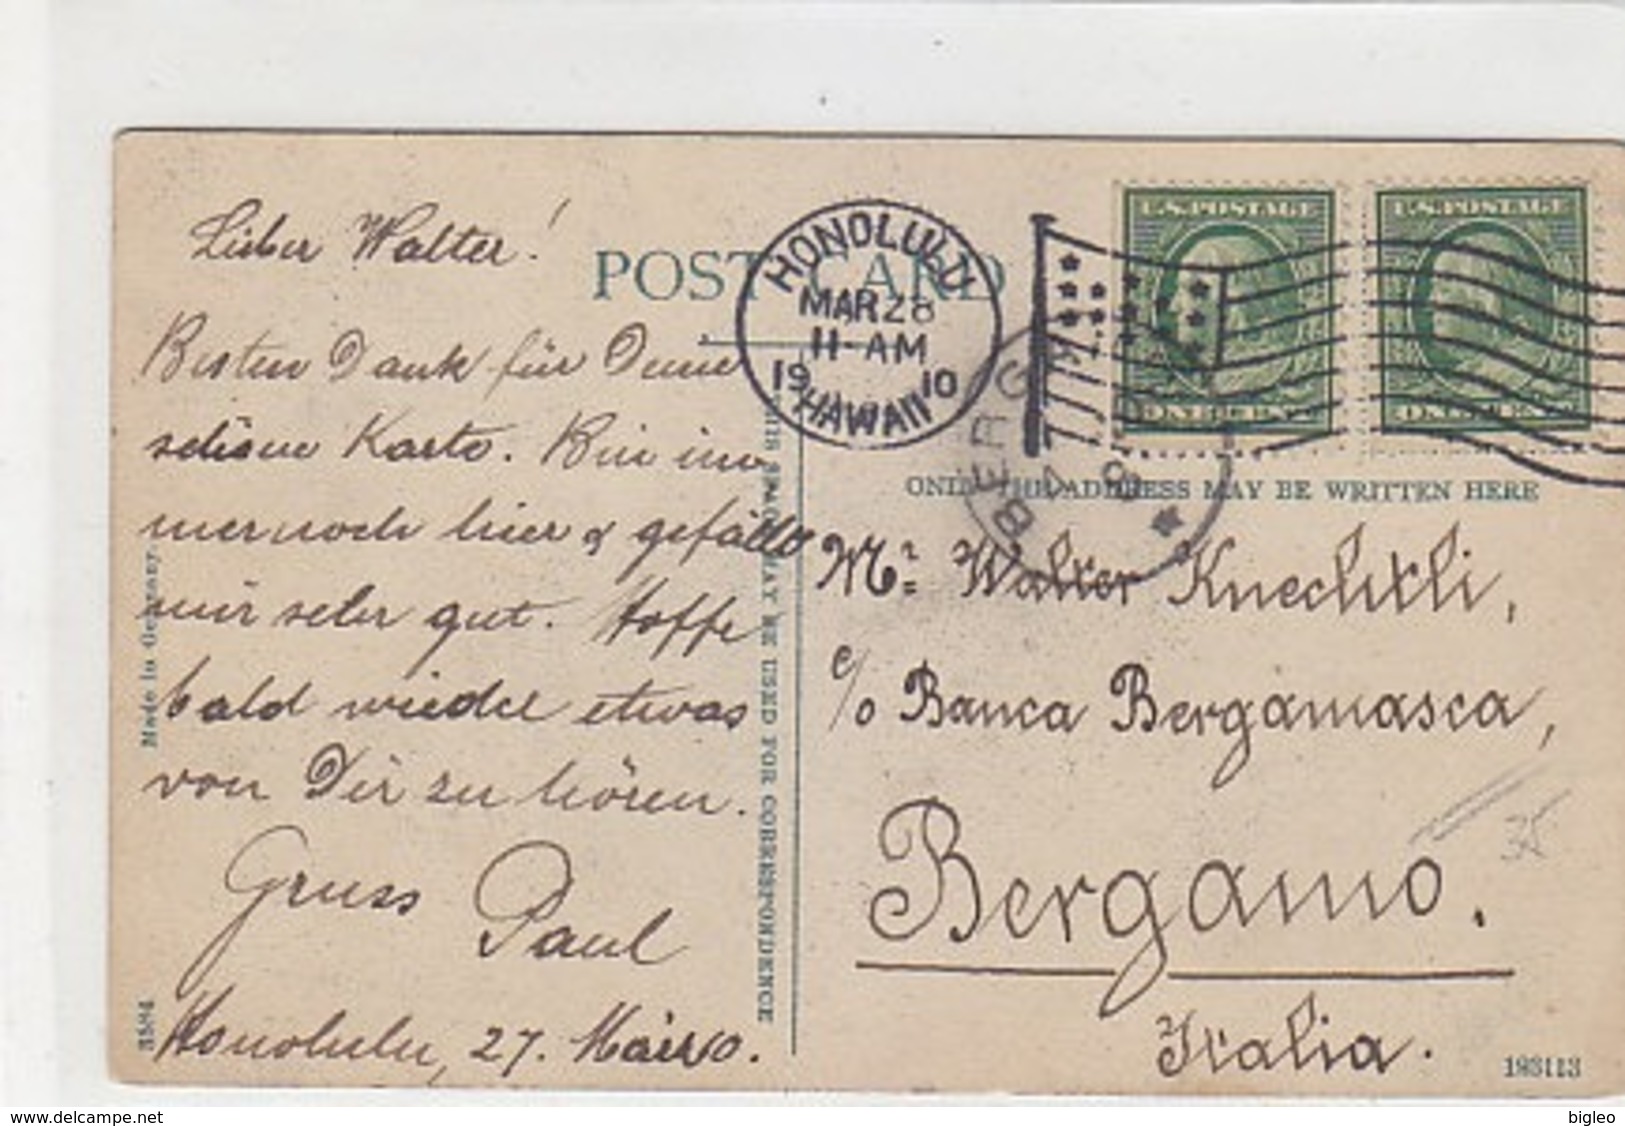 Lieber Walter!
Besten Dank für Deine
schöne Karte. Bin im-
mer noch hier & gefällt
mir sehr gut. Hoffe
bald wieder etwas
von Dir zu hören.
Gruss Paul
Honolulu, 27. März 10.
Made in Germany.
3584
POST CARD
THIS SPACE MAY BE USED FOR CORRESPONDENCE
HONOLULU
MAR 28
11-AM
1910
HAWAII
U.S. POSTAGE
ONE CENT
U.S. POSTAGE
ONE CENT
BERG
ONLY THE ADDRESS MAY BE WRITTEN HERE
Mr. Walter Knechtli,
c/o Banca Bergamasca,
Bergamo.
Italia.
35
193113
www.delcampe.net
bigleo